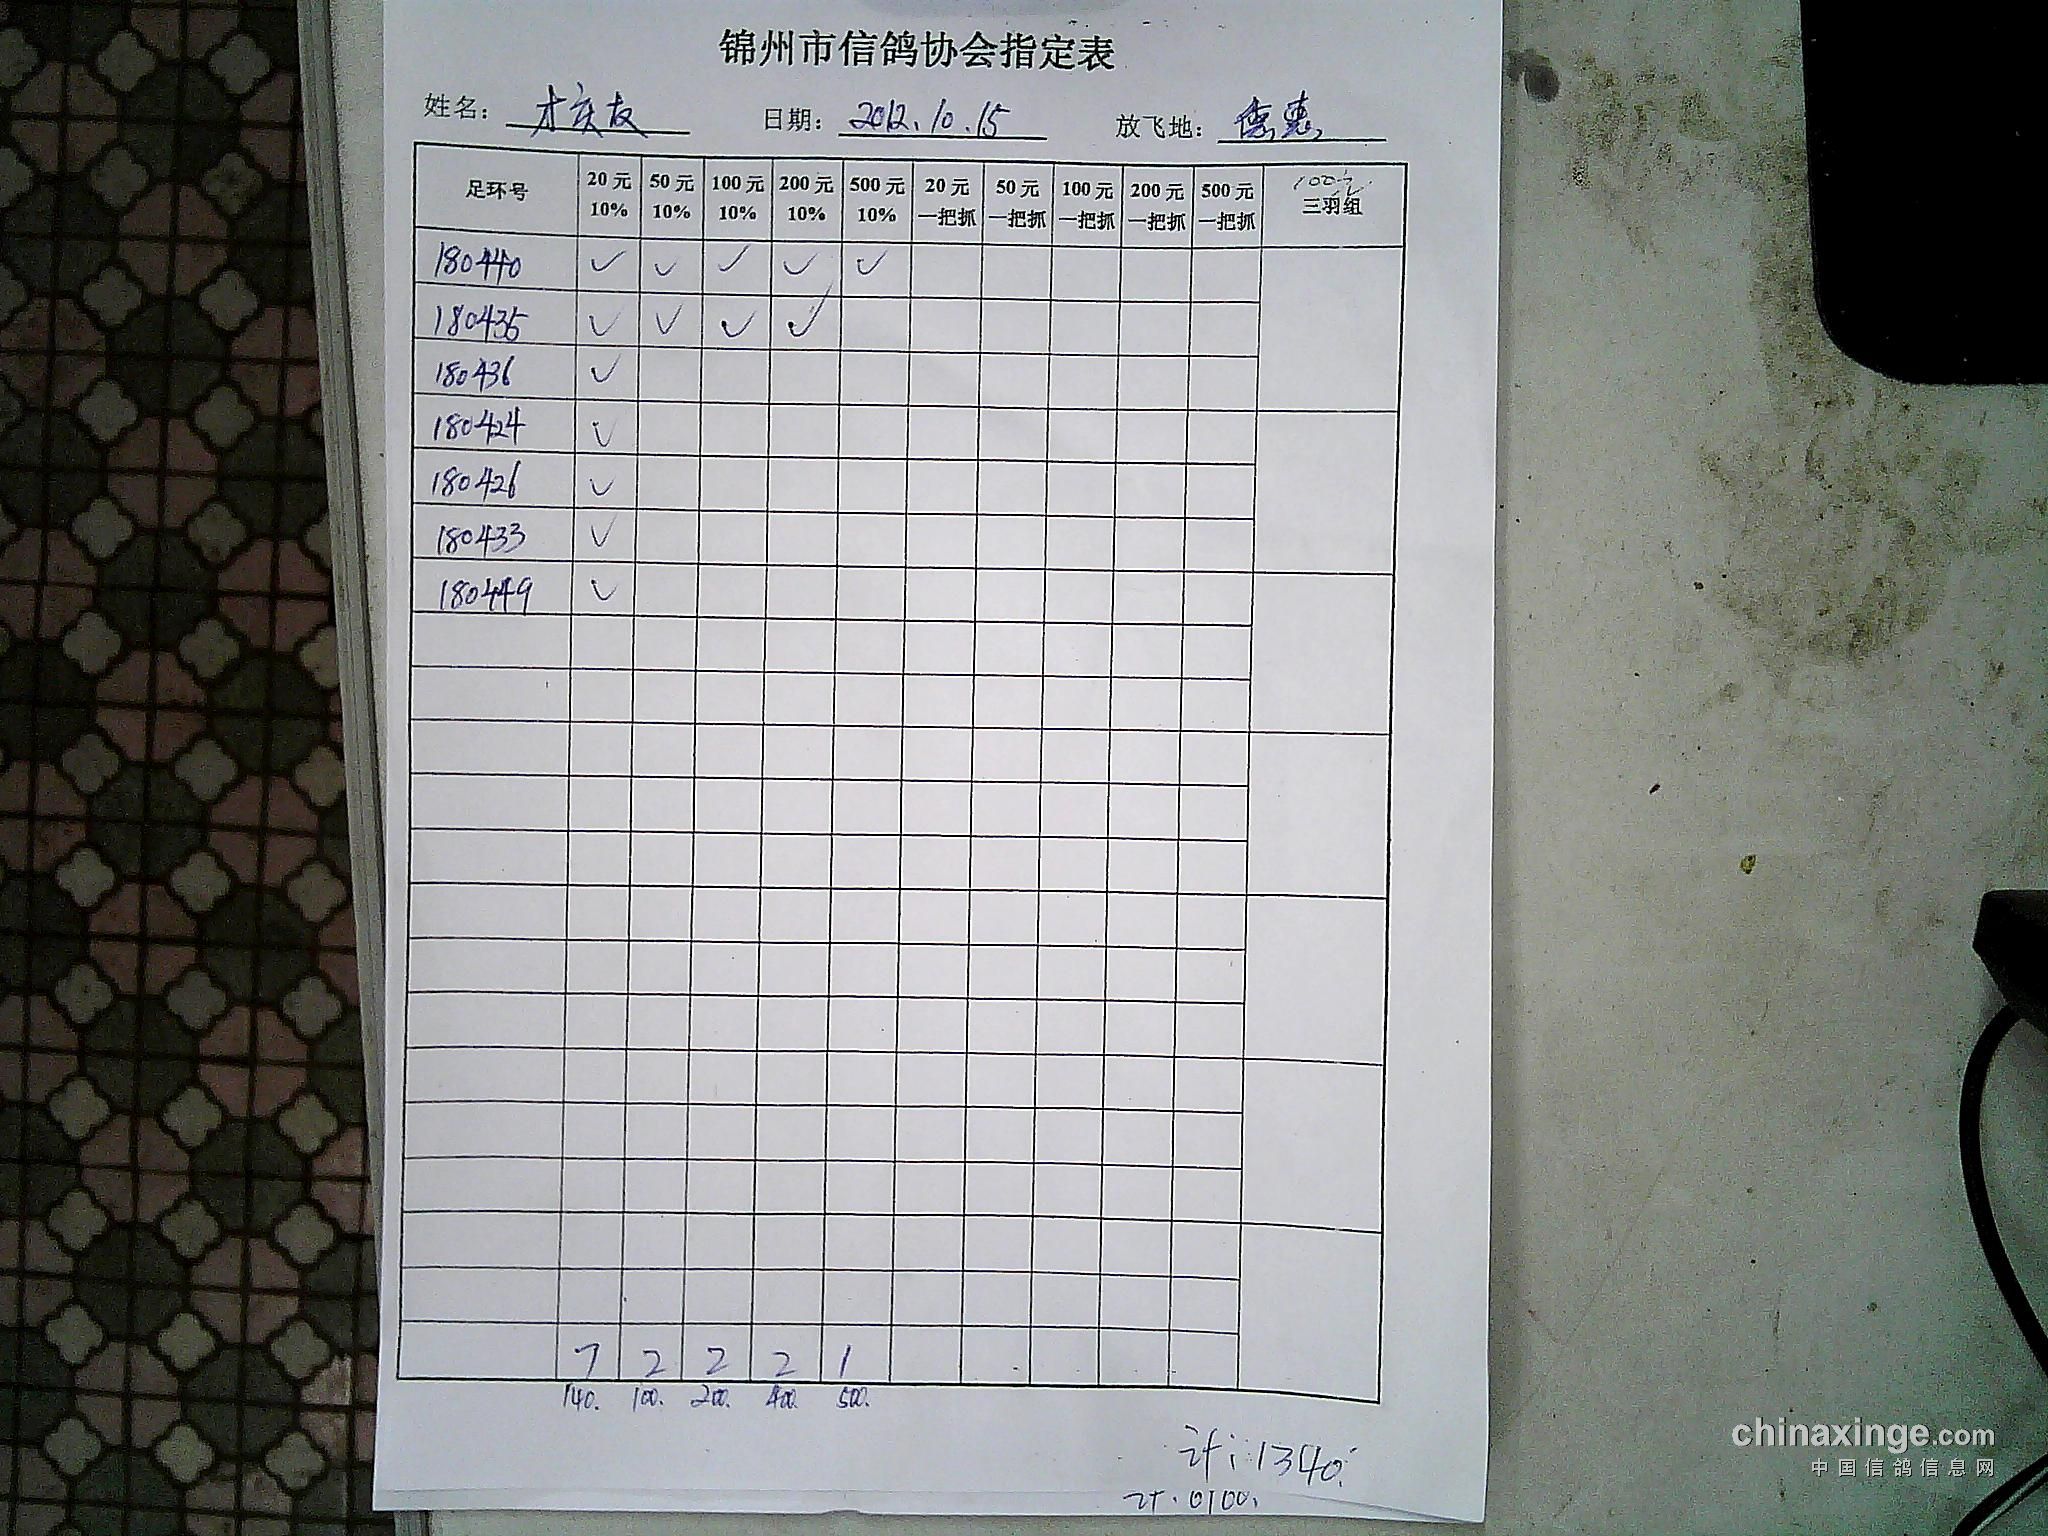 锦州市信鸽协会指定表
姓名: 才庆友 日期: 2012.10.15 放飞地: 德惠
足环号 20元 10% 50元 10% 100元 10% 200元 10% 500元 10% 20元 一把抓 50元 一把抓 100元 一把抓 200元 一把抓 500元 一把抓 100元 三羽组
180440 ✓ ✓ ✓ ✓ ✓
180435 ✓ ✓ ✓ ✓
180436 ✓
180424 ✓
180426 ✓
180433 ✓
180449 ✓
7 2 2 2 1
140. 100. 200. 400. 500.
计:1340.
chinaxinge.com
中国信鸽信息网